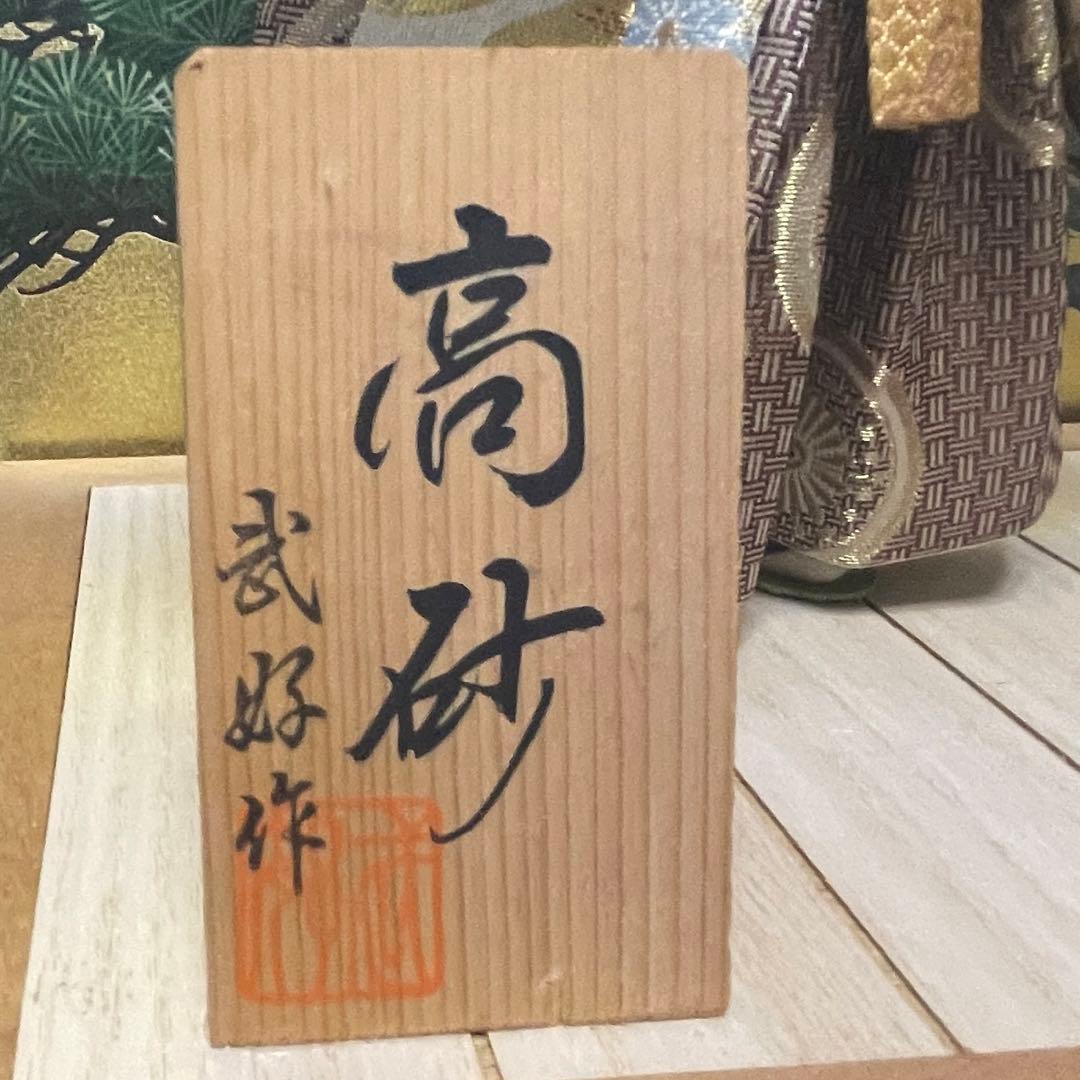 高砂
武好作